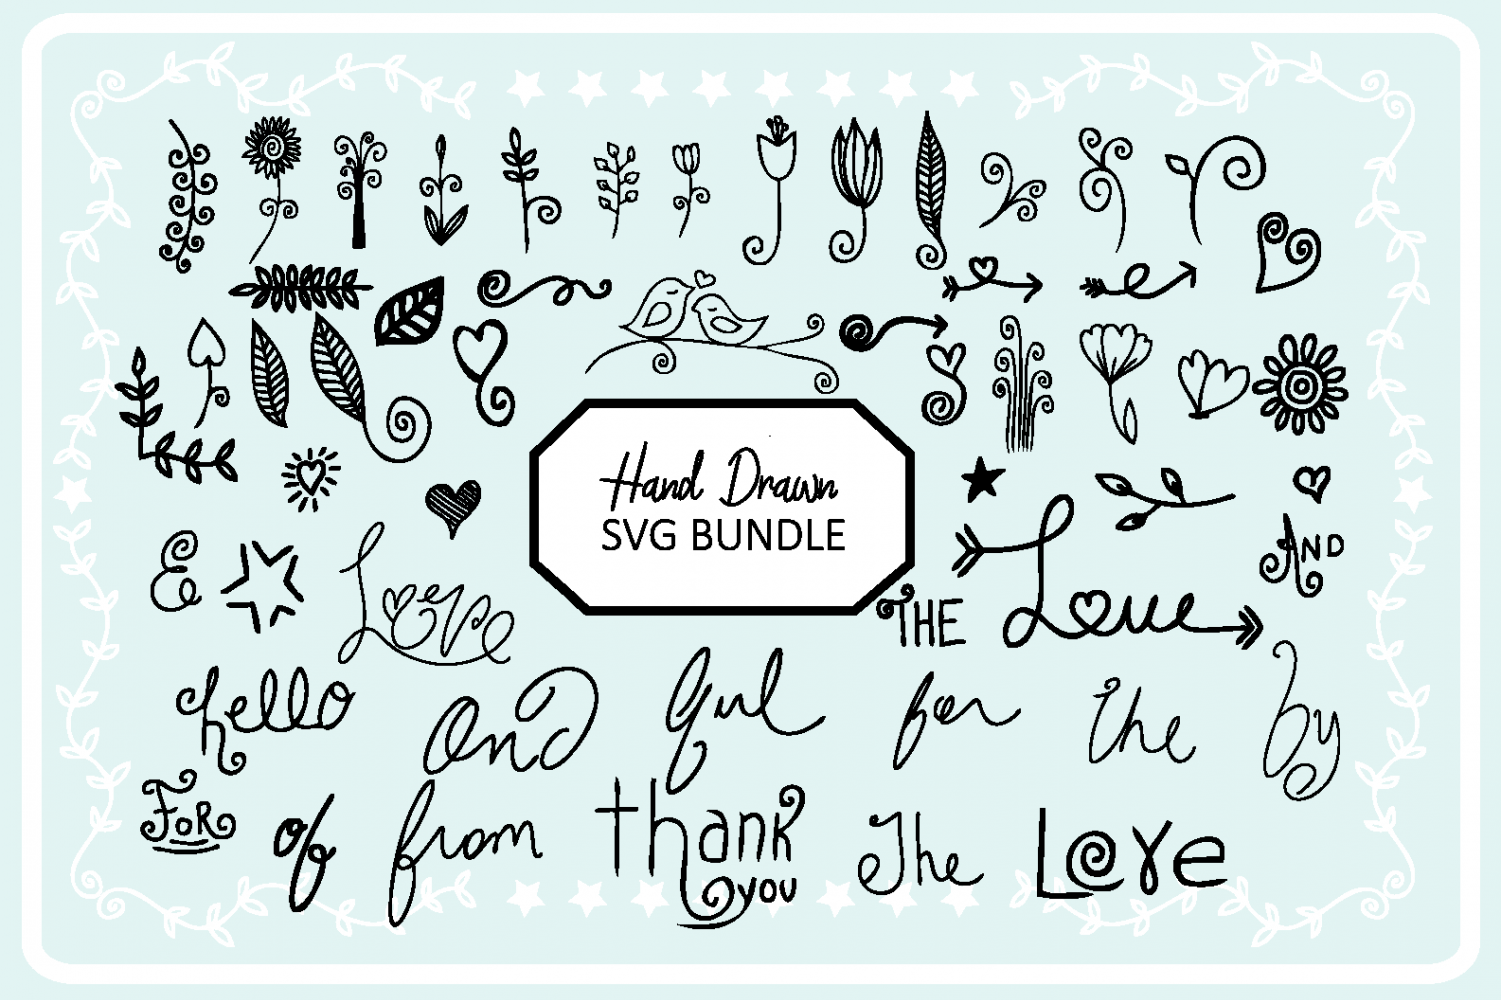 Hand Drawn
SVG BUNDLE
AND
Love
THE Love
hello and girl for the by
FOR of from thank The Love
you